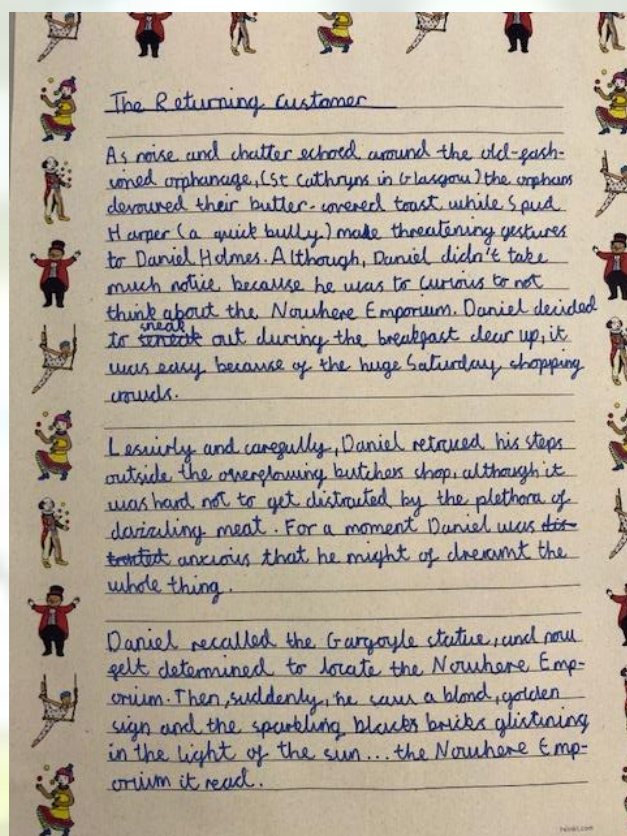 The Returning Customer
As noise and chatter echoed around the old-fash-
ioned orphanage, (St Cathryns in Glasgow) the orphans
devoured their butter-covered toast while Spud
Harper (a quick bully) make threatening gestures
to Daniel Holmes. Although, Daniel didn't take
much notice because he was to curious to not
think about the Nowhere Emporium. Daniel decided
to sneak out during the breakfast clear up, it
was easy because of the huge Saturday shopping
crowds.
Lesuirly and carefully, Daniel retraced his steps
outside the overflowing butchers shop, although it
was hard not to get distracted by the plethora of
dazzling meat. For a moment Daniel was dis-
tracted anxious that he might of dreamt the
whole thing.
Daniel recalled the Gargoyle statue, and now
felt determined to locate the Nowhere Emp-
orium. Then, suddenly, he saw a blond, golden
sign and the sparkling blacks bricks glistining
in the light of the sun... the Nowhere Emp-
orium it read.
twinkl.com